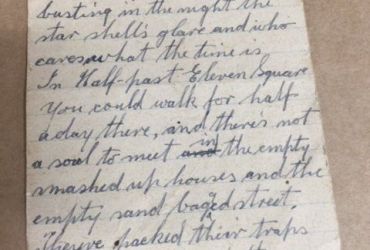 busting in the night the
star shell's glare and who
cares what the time is
In Half-past Eleven Square
You could walk for half
a day there, and there's not
a soul to meet and in the empty
smashed up houses and the
empty sand bagged street.
Theve packed their traps